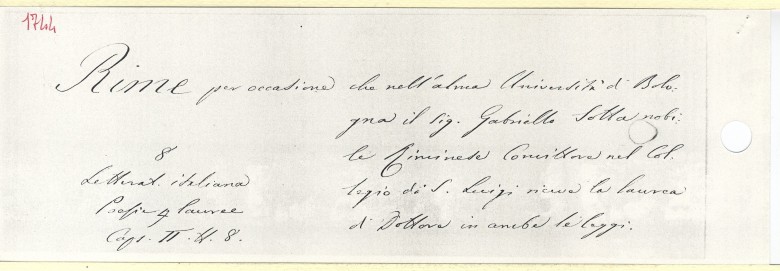 1744
Rime per occasione che nell'alma Università di Bolo-
gna il Sig. Gabriello Sotta nobi-
le Riminese Convittore nel Col-
legio di S. Luigi riceve la laurea
di Dottore in ambe le leggi.
8
Letterat. italiana
Poesie 4 lauree
Caps. II. H. 8.